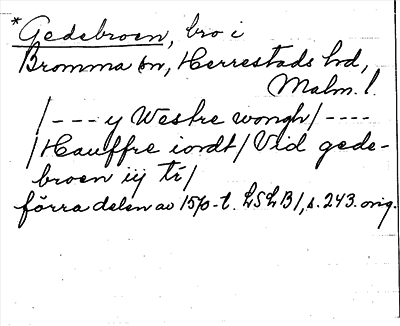 *Gedebroen, bro i
Bromma sn, Herrestads hd,
Malm. l.
/--- y Westre wongh/----
/Hauffre iordt/ Vid gede-
broen iij tr/
förra delen av 1570-t. LSLB1, s. 243. orig.